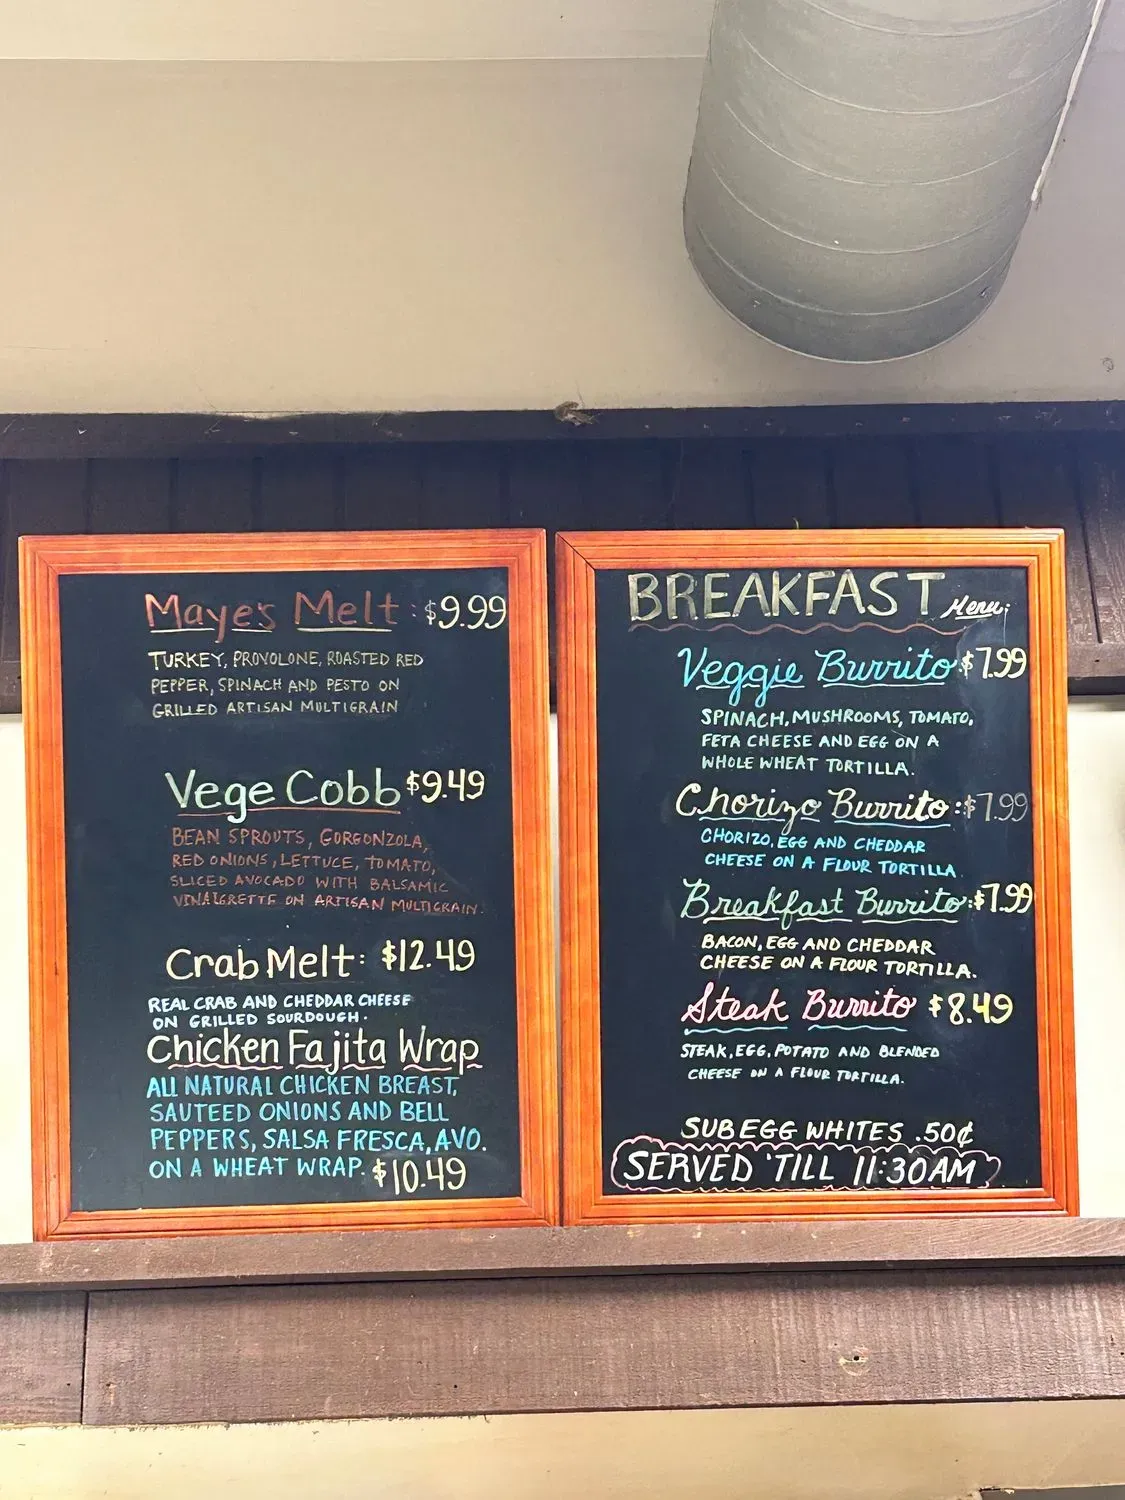 Maye's Melt: $9.99
TURKEY, PROVOLONE, ROASTED RED
PEPPER, SPINACH AND PESTO ON
GRILLED ARTISAN MULTIGRAIN
Vege Cobb $9.49
BEAN SPROUTS, GORGONZOLA,
RED ONIONS, LETTUCE, TOMATO,
SLICED AVOCADO WITH BALSAMIC
VINAIGRETTE ON ARTISAN MULTIGRAIN.
Crab Melt: $12.49
REAL CRAB AND CHEDDAR CHEESE
ON GRILLED SOURDOUGH.
Chicken Fajita Wrap
ALL NATURAL CHICKEN BREAST,
SAUTEED ONIONS AND BELL
PEPPERS, SALSA FRESCA, AVO.
ON A WHEAT WRAP. $10.49
BREAKFAST Menu:
Veggie Burrito $7.99
SPINACH, MUSHROOMS, TOMATO,
FETA CHEESE AND EGG ON A
WHOLE WHEAT TORTILLA.
Chorizo Burrito: $7.99
CHORIZO, EGG AND CHEDDAR
CHEESE ON A FLOUR TORTILLA.
Breakfast Burrito: $7.99
BACON, EGG AND CHEDDAR
CHEESE ON A FLOUR TORTILLA.
Steak Burrito $8.49
STEAK, EGG, POTATO AND BLENDED
CHEESE ON A FLOUR TORTILLA.
SUB EGG WHITES .50¢
SERVED 'TILL 11:30AM